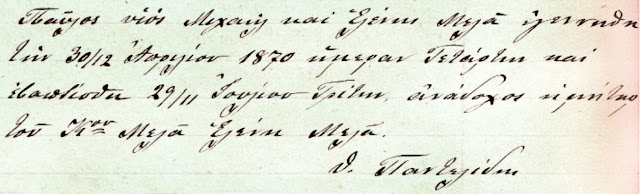 Παῦλος υἱὸς Μιχαὴλ καὶ Ἑλένης Μελᾶ ἐγεννήθη
τὴν 30/12 Ἀπριλίου 1870 ἡμέραν Τετάρτην καὶ
ἐβαπτίσθη 29/11 Ἰουνίου Τρίτην, ἀνάδοχος ἡ μήτηρ
τοῦ Κου Μελᾶ Ἑλένη Μελᾶ.
Θ. Παντελίδης